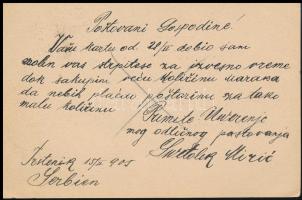 Poštovani Gospodine!
Vašu kartu od 28/II dobio sam
molim vas strpite se za izvesno vreme
dok sakupim veću količinu maraka
da nebih plaćao poštarinu za tako
malu količinu.
Primite Uverenje
mog odličnog poštovanja
Svetolik
15/ 905
Serbien